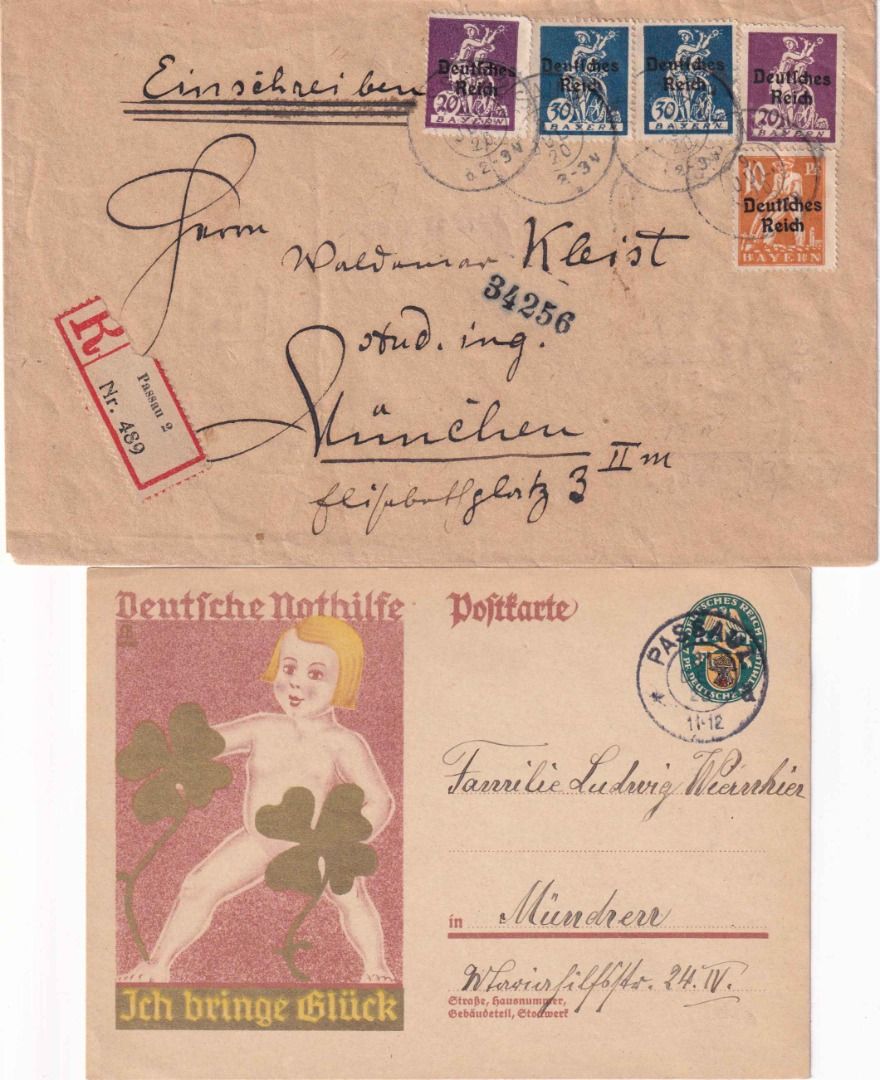 Einschreiben
Deutsches
Reich
20
BAYERN
Deutsches
Reich
30
BAYERN
Deutsches
Reich
30
BAYERN
Deutsches
Reich
20
BAYERN
10 Pf
Deutsches
Reich
BAYERN
20
2-3 N
20
2-3 N
20
Herrn
Waldemar Kleist
34256
stud. ing.
München
Elisabethplatz 3 II m
R
Passau 2
Nr. 489
Deutsche Nothilfe
Ich bringe Glück
Postkarte
DEUTSCHES REICH
DEUTSCHE NOTHILFE
PASSAU
11-12
Familie Ludwig
in München
Mariahilfstr. 24. IV.
Straße, Hausnummer,
Gebäudeteil, Stockwerk